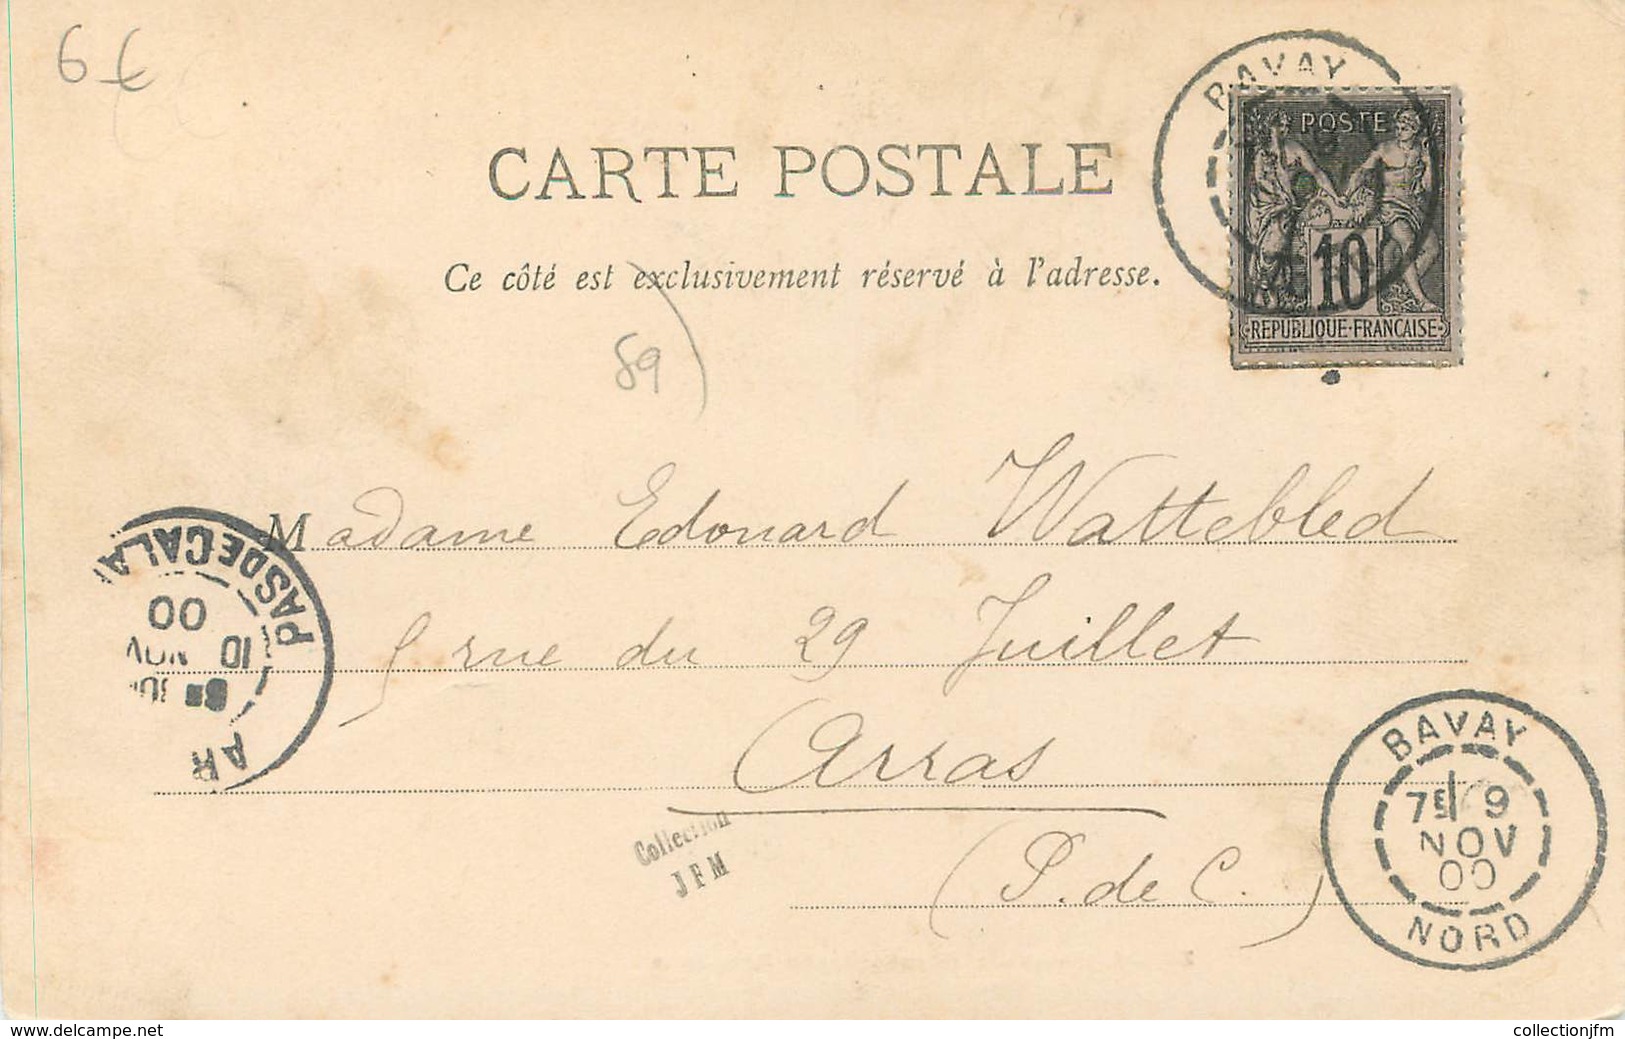 6€
BAVAY
POSTE
10
REPUBLIQUE·FRANCAISE
CARTE POSTALE
Ce côté est exclusivement réservé à l'adresse.
59
Madame Edouard Wattebled
5 rue du 29 Juillet
Arras
(P. de C.)
PAS DE CALA
10
NOV
00
AR
Collection
JFM
BAVAY
7E 9
NOV
00
NORD
www.delcampe.net
collectionjfm